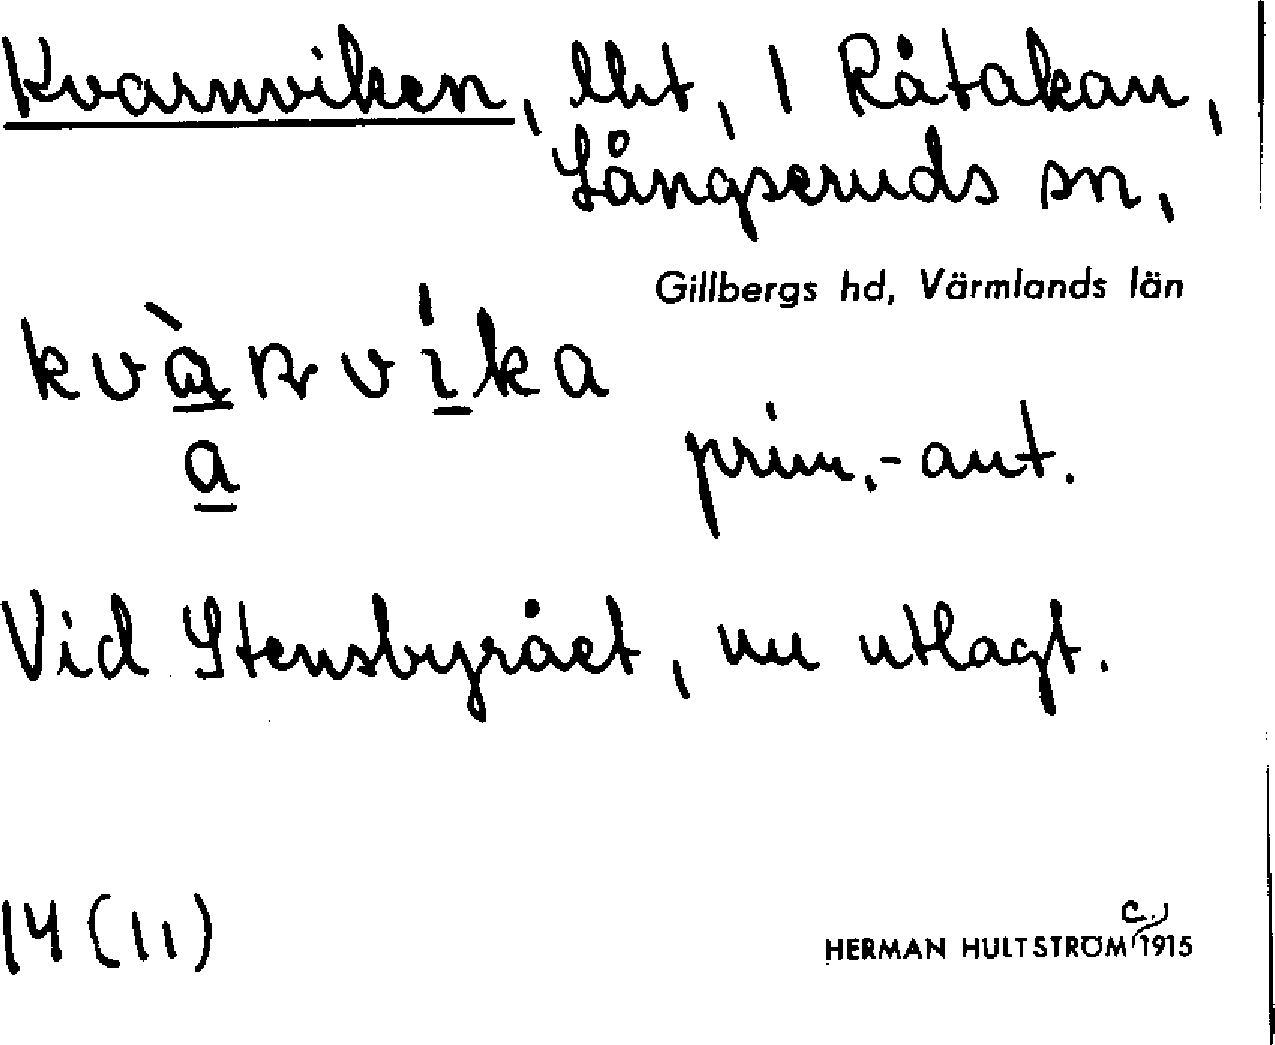 Kvarnviken, lht, 1 Råtakan,
Långseruds sn,
Gillbergs hd, Värmlands län
kvàrnvíka
a
prim.-ant.
Vid Stensbyrået, nu utlagt.
14 (11)
c.
HERMAN HULTSTRÖM 1915